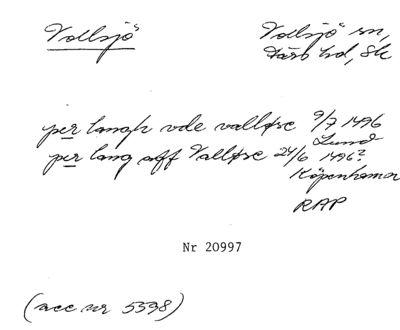 Vollsjö s
Vollsjö sn,
Färs hd, Sk
per langh vde valløse 9/7 1496
Lund
per lang aff Valløse 24/6 1496?
Köpenhamn
RAP
Nr 20997
(acc nr 5598)